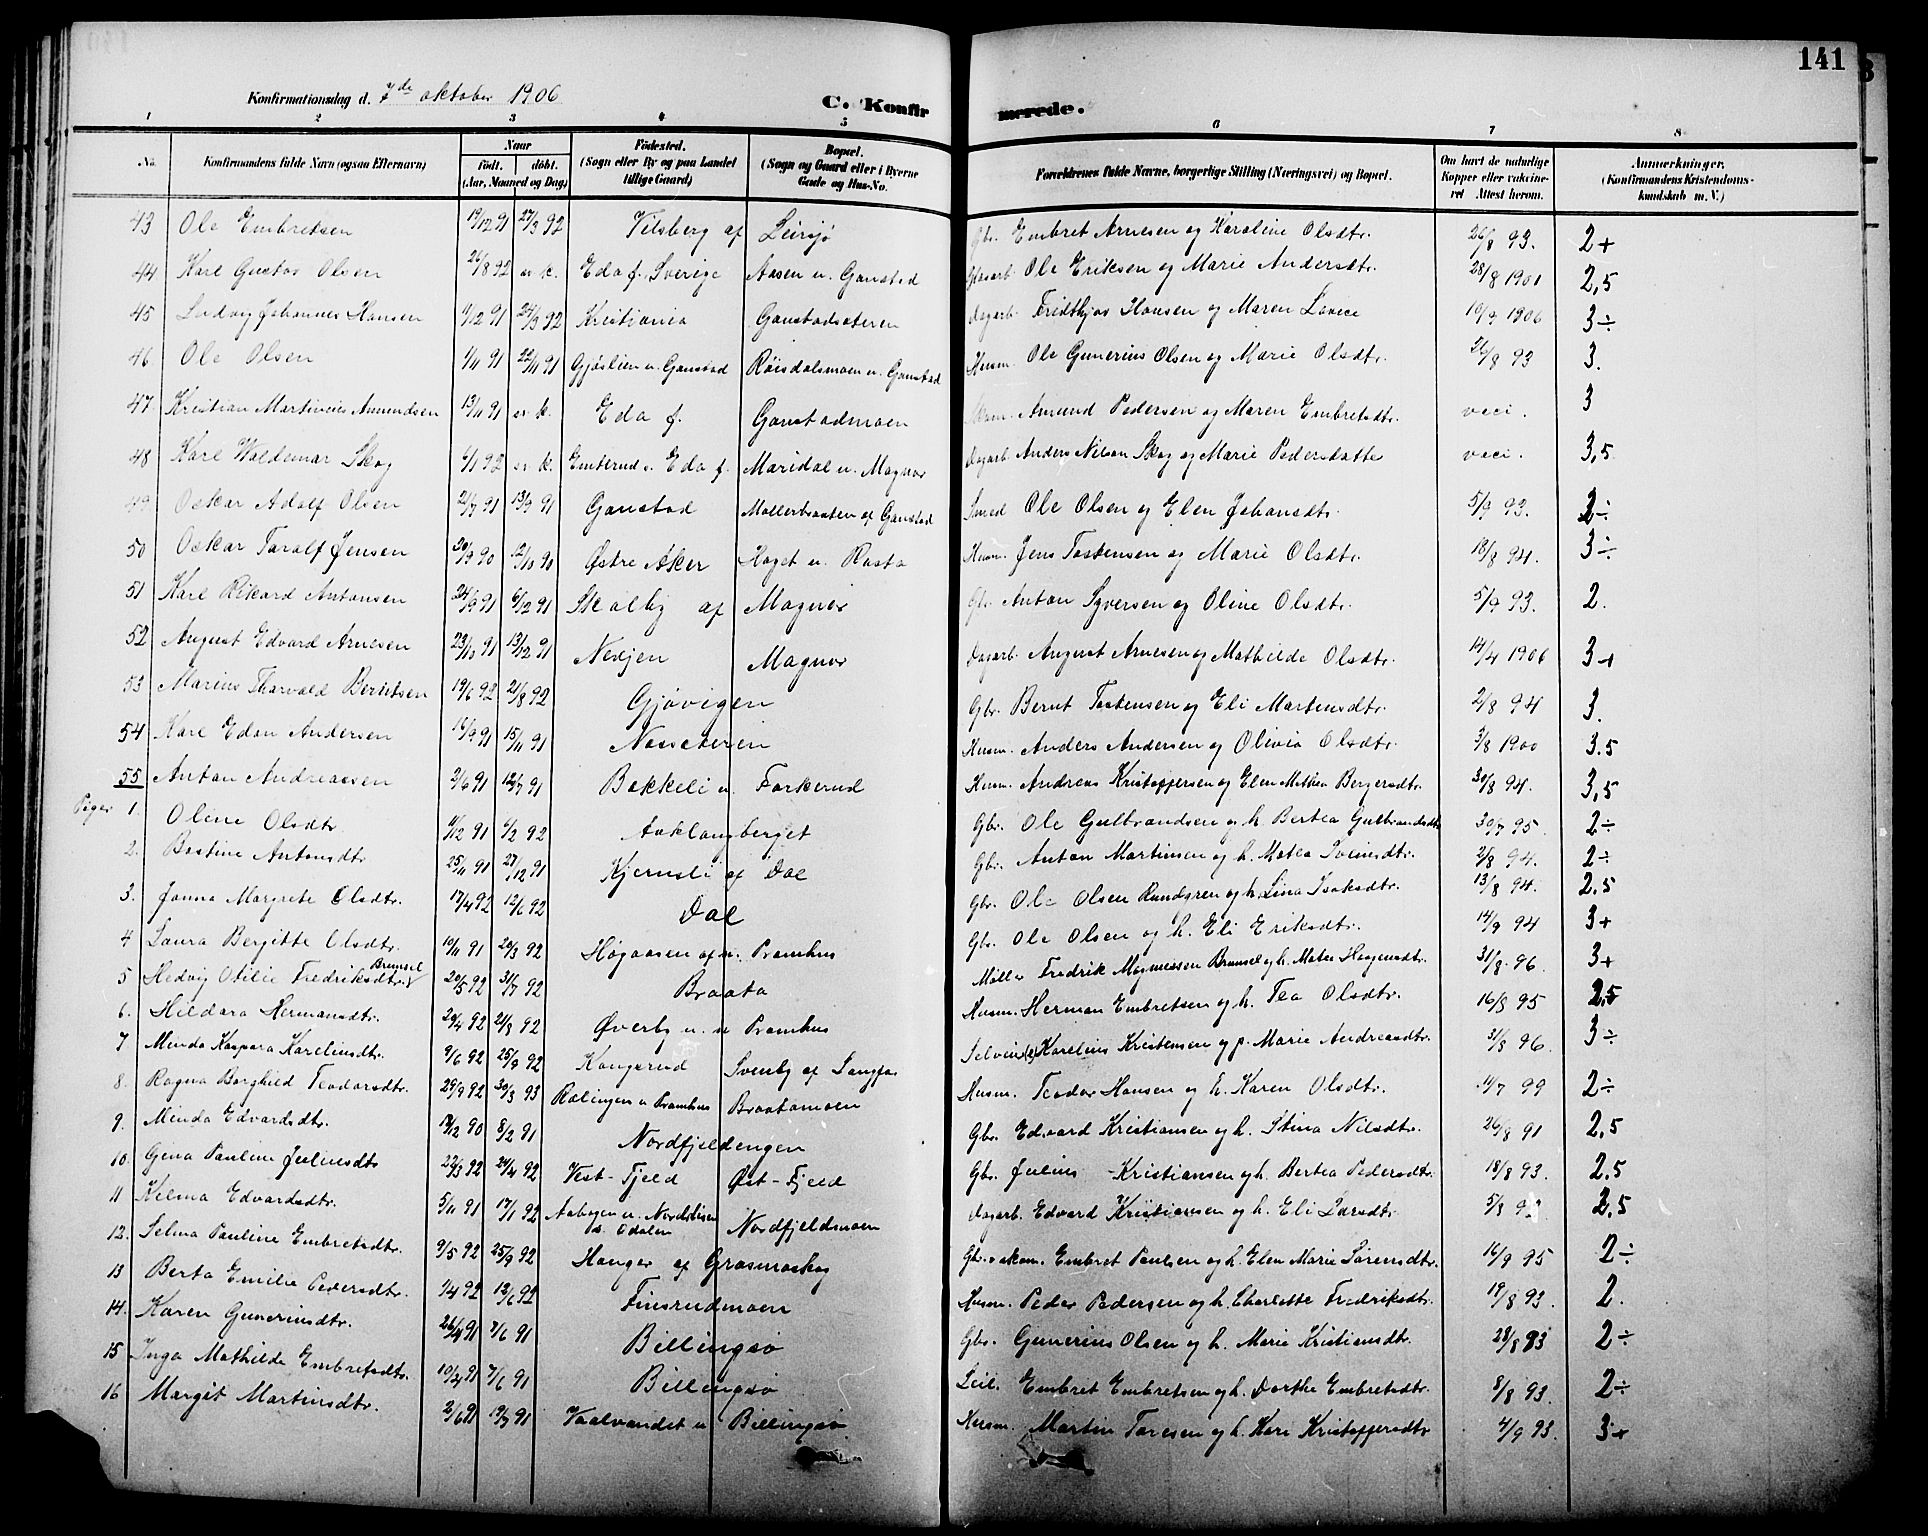 141
Konfirmationsdag d. 7de oktober 1906
C. Konfirmerede.
1 2 3 4 5 6 7 8
No. Konfirmandens fulde Navn (ogsaa Efternavn) Naar födt. döbt. (Aar, Maaned og Dag) Födested. (Sogn eller By og paa Landet tillige Gaard) Bopæl. (Sogn og Gaard eller i Byerne Gade og Hus-No. Forældrenes fulde Navne, borgerlige Stilling (Næringsvei) og Bopæl. Om havt de naturlige Kopper eller vaccineret Attest herom. Anmærkninger. (Konfirmandens Kristendomskundskab m. V.)
43 Ole Embretsen 19/12 91 27/3 92 Vilsberg af Leirsjø Gbr. Embret Arnesen og Karoline Olsdtr. 26/8 93. 2+
44 Karl Gustav Olsen 26/8 92 sv. k. Eda f. Sverige Aasen u. Ganstad Ole Eriksen og Marie Andersdtr. 28/8 1901 2,5
45 Ludvig Johannes Hansen 1/12 91 24/3 92 Kristiania Ganstadsæteren Dagarb. Fridthjov Hansen og Maren Lovise 10/9 1906 3÷
46 Ole Olsen 1/11 91 22/11 91 Gjøslien u. Ganstad Røisdalsmoen u. Ganstad Husm. Ole Gunerius Olsen og Marie Olsdtr. 26/8 93 3.
47 Kristian Martinius Amundsen 13/11 91 sv. k. Eda f. Ganstadmoen Husm. Amund Pedersen og Maren Embretsdtr. vacc. 3
48 Karl Waldemar Skog 6/1 92 sv. k. Emterud i Eda f. Maridal u. Magnor Dagarb. Anders Nilsen Skog og Marie Pedersdatter vacc. 3,5
49 Oskar Adolf Olsen 21/7 91 13/9 91 Ganstad Møllerbraaten af Ganstad Smed Ole Olsen og Elen Johansdtr. 5/9 93. 2÷
50 Oskar Toralf Jensen 20/9 90 12/10 90 Østre Aker Haget u. Rasta Husm. Jens Tostensen og Marie Olsdtr. 18/8 94. 3÷
51 Karl Rikard Antonsen 24/9 91 6/12 91 Skalby af Magnor Gbr. Anton Syversen og Oline Olsdtr. 5/9 93. 2.
52 August Edvard Arnesen 23/10 91 13/12 91 Nerjen Magnor Dagarb. August Arnesen og Mathilde Olsdtr. 14/4 1906 3+
53 Marius Thorvald Berntsen 19/6 92 21/8 92 Gjøvigen Gbr. Bernt Tostensen og Eli Martinsdtr. 2/8 94 3.
54 Karl Edon Andersen 16/9 91 15/11 91 Næsseteren Husm. Anders Andersen og Olivia Olsdtr. 3/8 1900 3.5
55 Anton Andreassen 2/6 91 12/7 91 Bakkeli u. Farkerud Husm. Andreas Kristoffersen og Elen Mathea Bergersdtr. 30/8 94. 3,5
Piger 1. Oline Olsdtr. 11/12 91 6/2 92 Aaklangberget Gbr. Ole Gulbrandsen og h. Bertea Gulbrandsdtr 30/7 95. 2÷
2. Bastine Antonsdtr 25/11 91 27/12 91 Kjernsli af Dal Gbr. Anton Martinsen og h. Matea Iversdtr. 2/8 94. 2÷
3. Janna Margrete Olsdtr. 17/4 92 12/6 92 Dal Gbr. Ole Olsen Rundgren og h. Lina Isaksdtr. 13/8 94. 2.5
4 Laura Bergitte Olsdtr. 10/11 91 20/3 92 Høgaasen af u. Pramhus Gbr. Ole Olsen og h. Eli Eriksdtr. 14/9 94 3+
5 Hedvig Otilie Fredriksdtr. Bramsel 20/5 92 31/7 92 Braata Møller Fredrik Magnussen Bramsel og h. Matea Haagensdtr. 31/8.96. 3+
6. Hildara Hermansdtr. 20/4 92 21/8 92 Øverby u. u Pramhus Husm. Herman Embretsen og h. Tea Olsdtr. 16/8 95 2,5
7 Minda Kaspara Karelinsdtr. 9/6 92 25/9 92 Kongsrud Svenby af Sangfos Karelius Kristensen og p. Marie Andreasdtr. 31/8 96. 3÷
8. Ragna Borghild Teodorsdtr. 29/9 92 30/3 93 Rølingen u Pramhus Braatamoen Husm. Teodor Hansen og h. Karen Olsdtr. 14/7 99 2÷
9. Minda Edvardsdtr. 19/12 90 8/2 91 Nordfjeldengen Gbr. Edvard Kristiansen og h. Stina Nilsdtr. 26/8 91 2,5
10. Gina Pauline Juliusdtr 22/3 92 24/4 92 Vest-Fjeld Øst-Fjeld Gbr. Julius Kristiansen og h. Bertea Pedersdtr. 18/8 93. 2.5
11 Hilma Edvardsdtr. 5/11 91 17/1 92 Aabogen u. Nordstuen s. Odalen Nordfjeldmoen Dagarb. Edvard Kristiansen og h. Eli Larsdtr. 2,5
12. Selma Pauline Embretsdtr. 9/5 92 25/9 92 Hanger af Grasmoskog Gbr. o skom. Embret Paulsen og h. Elen Marie Sørensdtr. 16/9 95 2÷
13 Berta Emilie Pedersdtr. 1/4 92 12/6 92 Finsrudmoen Husm. Peder Pedersen og h. Charlotte Fredriksdtr. 19/8 93. 2.
14. Karen Gunerinsdtr. 26/4 91 7/6 91 Billingsø Gbr. Gunerius Olsen og h. Marie Kristiansdtr. 28/8 93 2÷
15 Inga Mathilde Embretsdtr. 10/4 91 7/6 91 Billingsø Leil. Embret Embretsen og h. Dorthe Embretsdtr. 8/8 93. 2÷
16 Margit Martinsdtr. 2/6 91 19/7 91 Vaalvandet u Billingsø Husm. Martin Toresen og h. Kari Kristoffersdtr 4/9 93. 3+